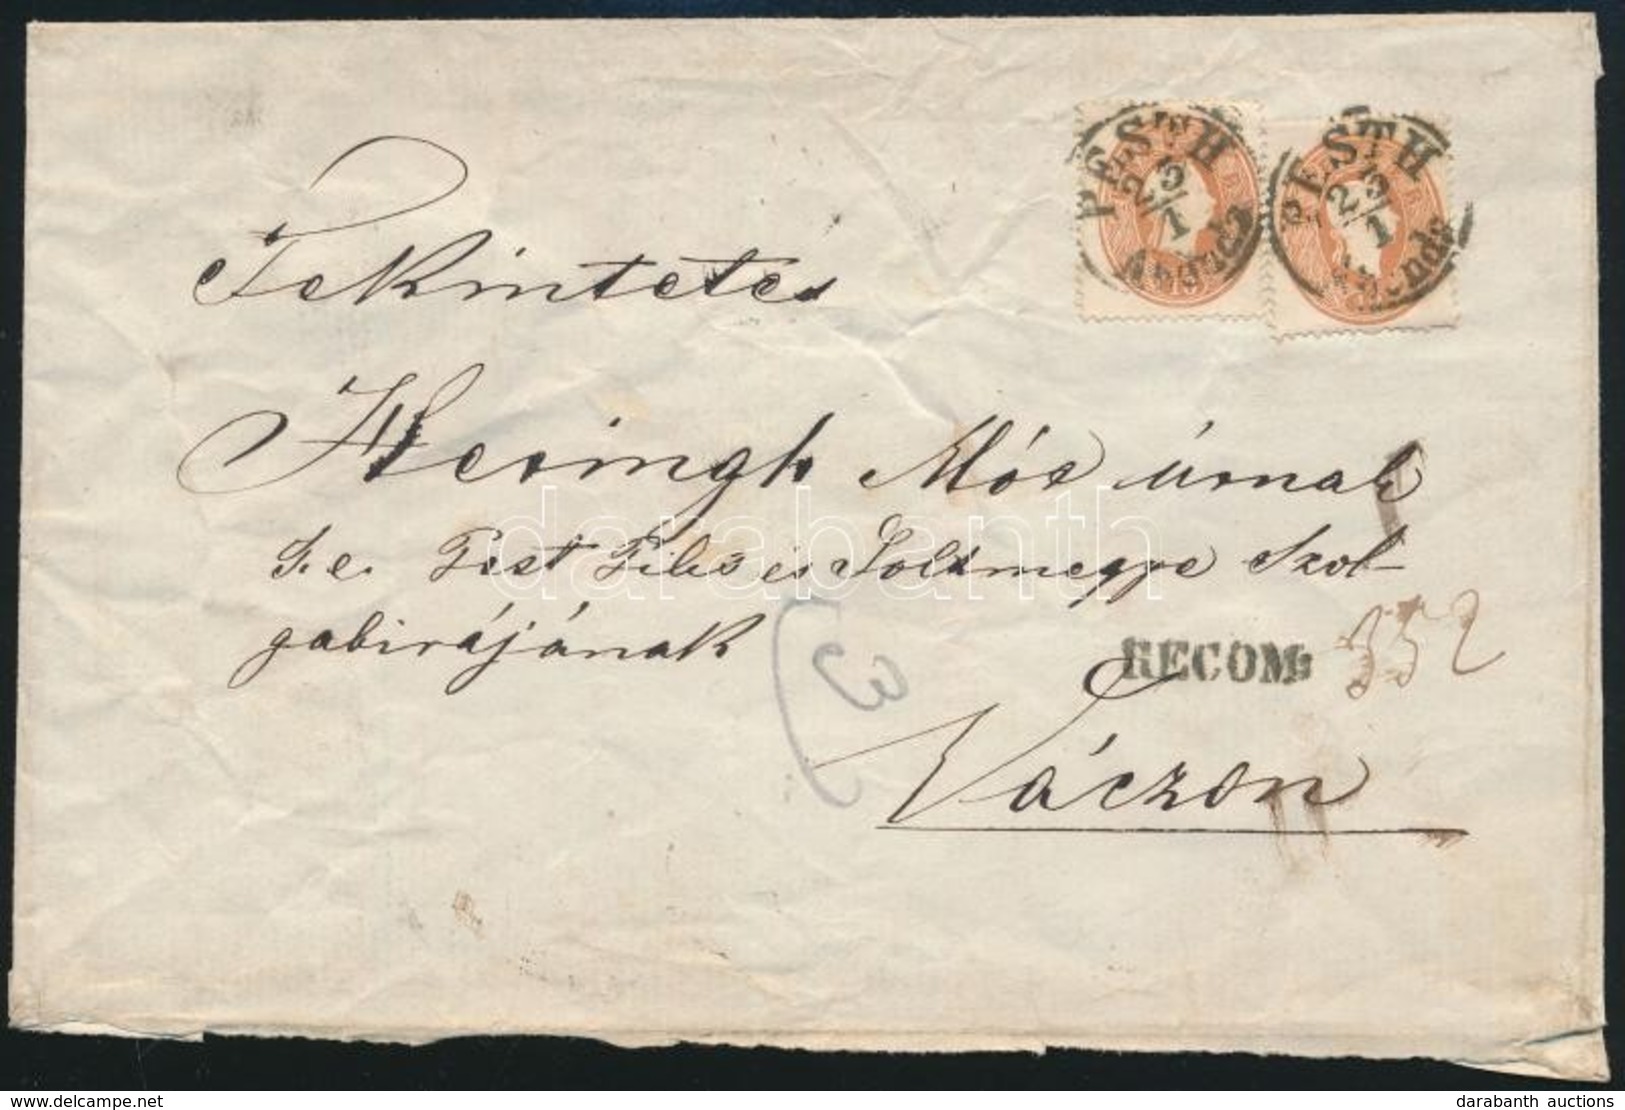 PESTH 23/1 Abends
PESTH 23/1 Abends
Tekintetes
Kesingh Mór úrnak
T. e. Pest Pilis és Soltmegye Szol-
gabirájának
RECOM: 352
3
Váczon
darabanth
delcampe.net
darabanth auctions